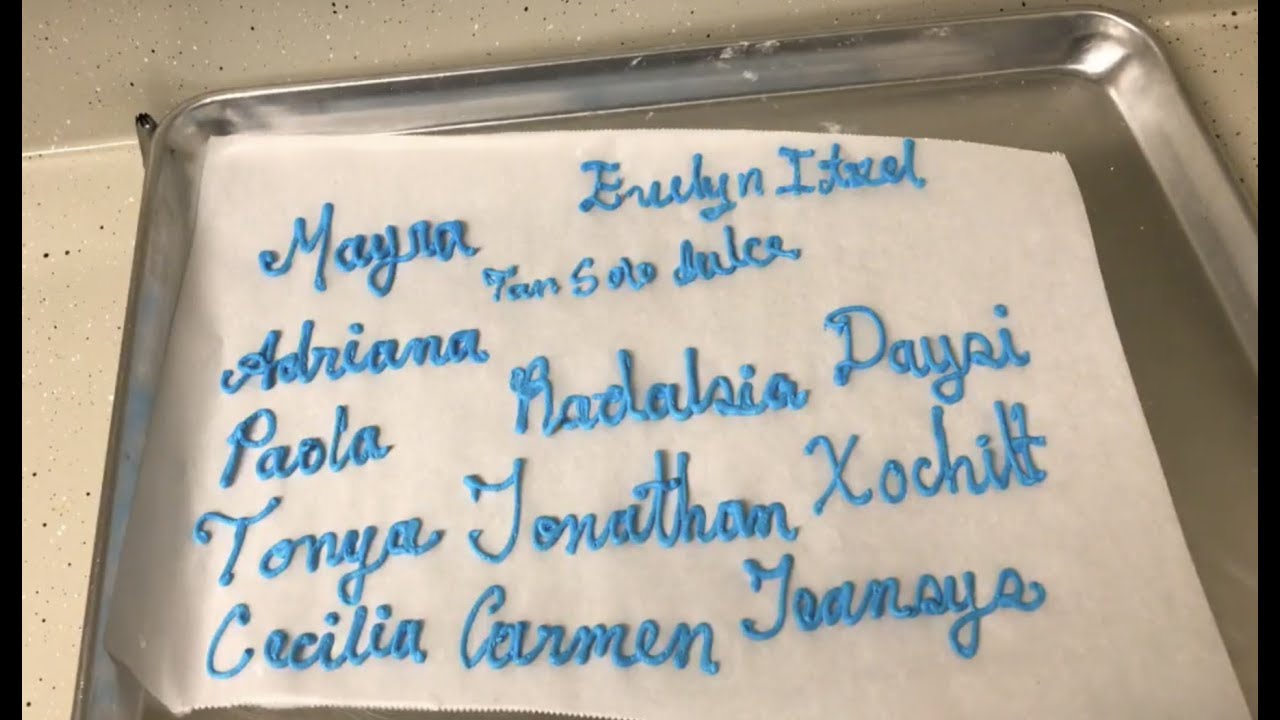 Evelyn Itzel
Mayra
Tan Solo dulce
Adriana
Radalsia Daysi
Paola
Tonya Jonathan Xochilt
Cecilia Carmen Joansys